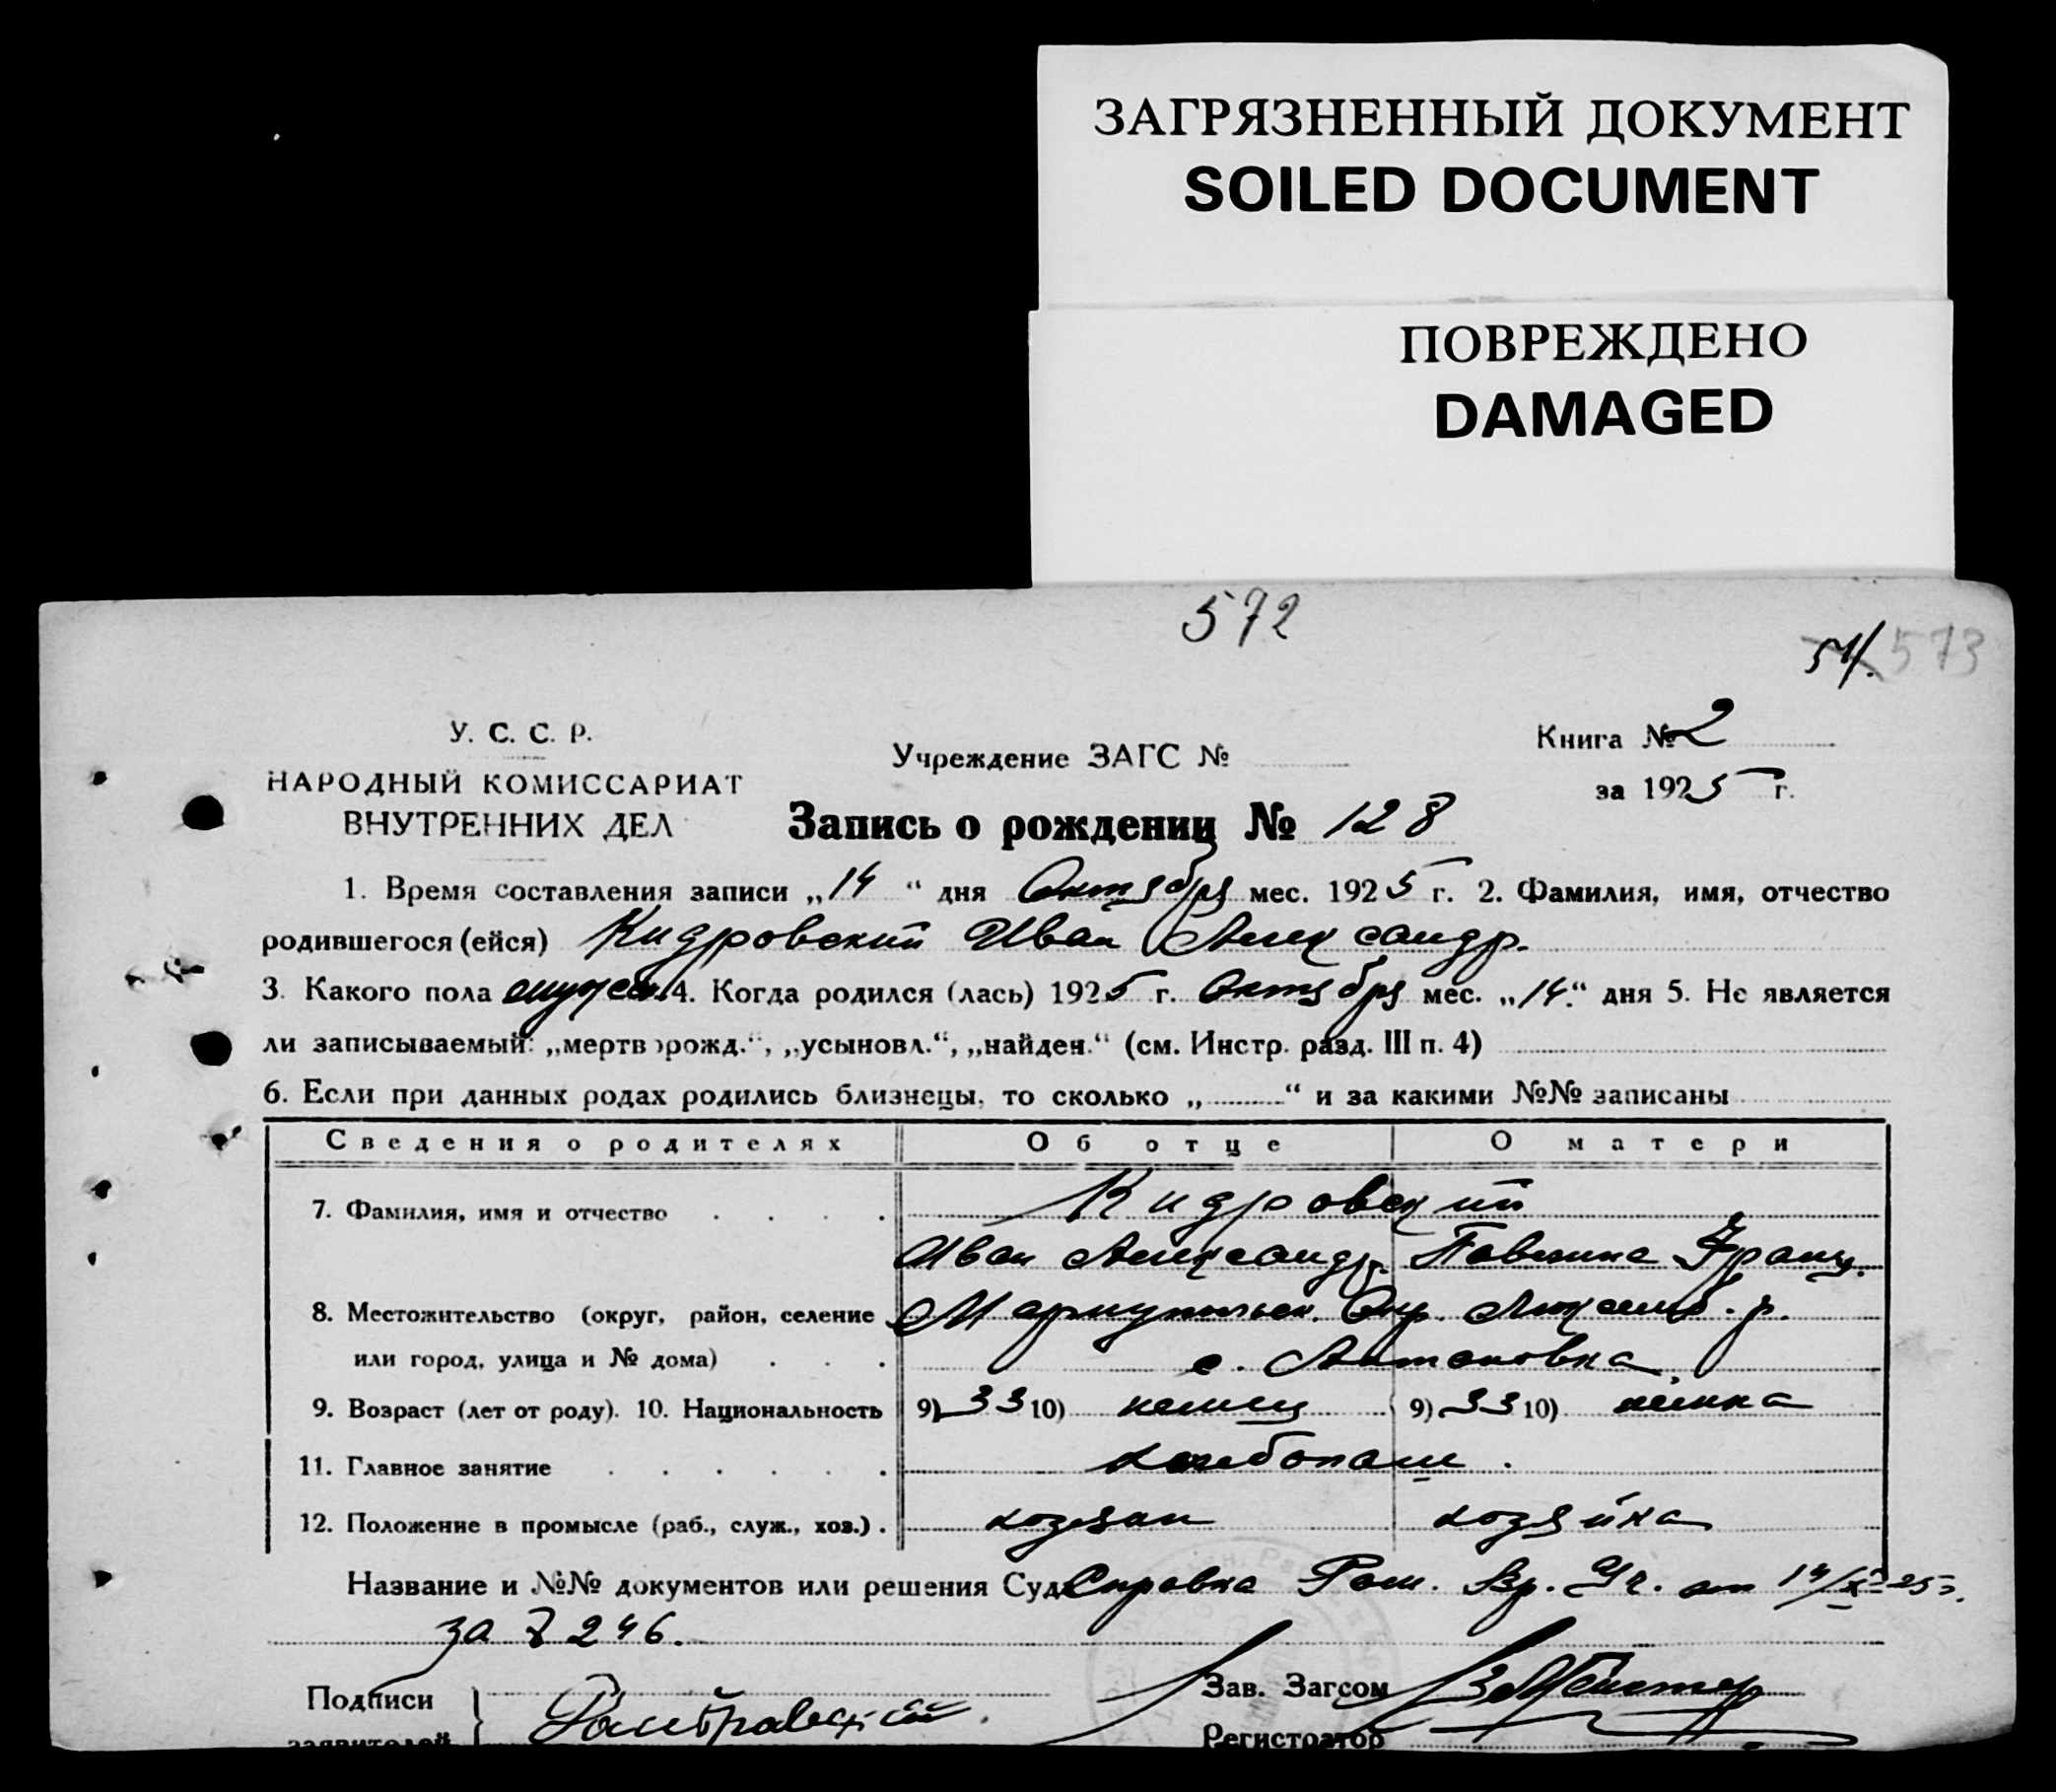 ЗАГРЯЗНЕННЫЙ ДОКУМЕНТ
SOILED DOCUMENT
ПОВРЕЖДЕНО
DAMAGED
572
573
У. С. С. Р.
НАРОДНЫЙ КОМИССАРИАТ
ВНУТРЕННИХ ДЕЛ
Учреждение ЗАГС №
Книга № 2
за 1925 г.
Запись о рождении № 128
1. Время составления записи „14“ дня Октября мес. 1925 г. 2. Фамилия, имя, отчество
родившегося (ейся) Кидровский Иван Александр.
3. Какого пола мужск. 4. Когда родился (лась) 1925 г. Октября мес. „14.“ дня 5. Не является
ли записываемый: „мертворожд.“, „усыновл.“, „найден.“ (см. Инстр. разд. III п. 4)
6. Если при данных родах родились близнецы, то сколько „ “ и за какими №№ записаны
Сведения о родителях Об отце О матери
7. Фамилия, имя и отчество Кидровский
Иван Александр. Павлина Франц.
8. Местожительство (округ, район, селение Мариупольск. Окр. Люксемб. р.
или город, улица и № дома) с. Антоновка
9. Возраст (лет от роду). 10. Национальность 9) 33 10) немец 9) 33 10) немка
11. Главное занятие хлебопаш.
12. Положение в промысле (раб., служ., хоз.) хозяин хозяйка
Название и №№ документов или решения Суда Справка Вр. Уч. от 14/X-25 г.
за № 246.
Подписи
заявителей
Зав. Загсом
Регистратор